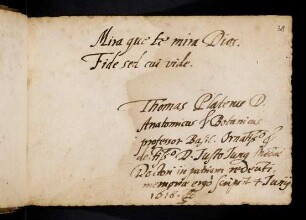 38
Mira que te mira Dios.
Fide sed cui vide.
Thomas Platerus D.
Anatomicus & Botanicus
professor Basil. Ornatiss. &
doctiss. D. Justo Jung
Doctori in patriam redeunti
memoriæ ergo scripsit
1616.